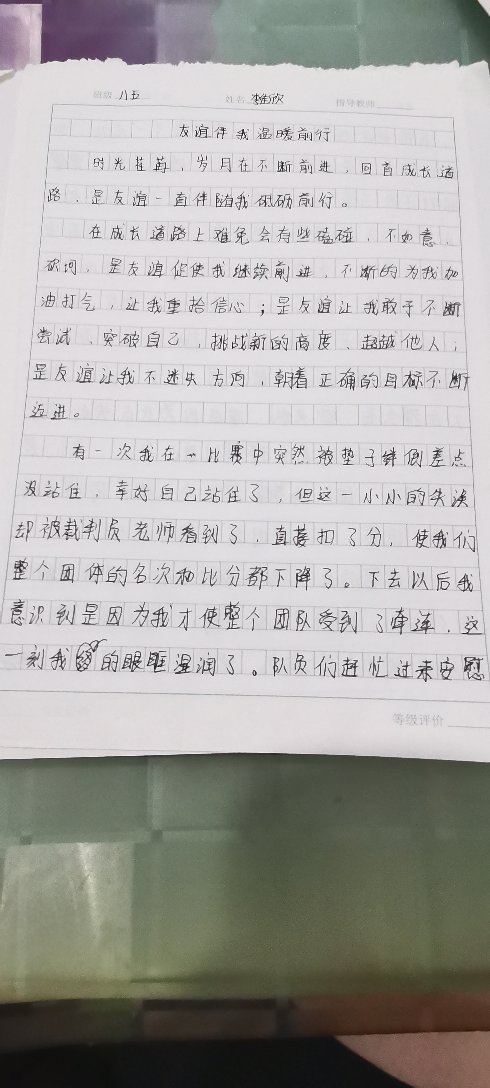 班级 八五 姓名 指导教师
友谊伴我温暖前行
时光荏苒，岁月在不断前进，回首成长道
路，是友谊一直伴随我砥砺前行。
在成长道路上难免会有些磕碰，不如意，
坎坷，是友谊促使我继续前进，不断的为我加
油打气，让我重拾信心；是友谊让我敢于不断
尝试，突破自己，挑战新的高度、超越他人；
是友谊让我不迷失方向，朝着正确的目标不断
迈进。
有一次我在一比赛中突然被垫子绊倒差点
没站住，幸好自己站住了，但这一小小的失误
却被裁判员老师看到了，直接扣了分，使我们
整个团体的名次和比分都下降了。下去以后我
意识到是因为我才使整个团队受到了牵连，这
一刻我的眼眶湿润了。队员们赶忙过来安慰
等级评价